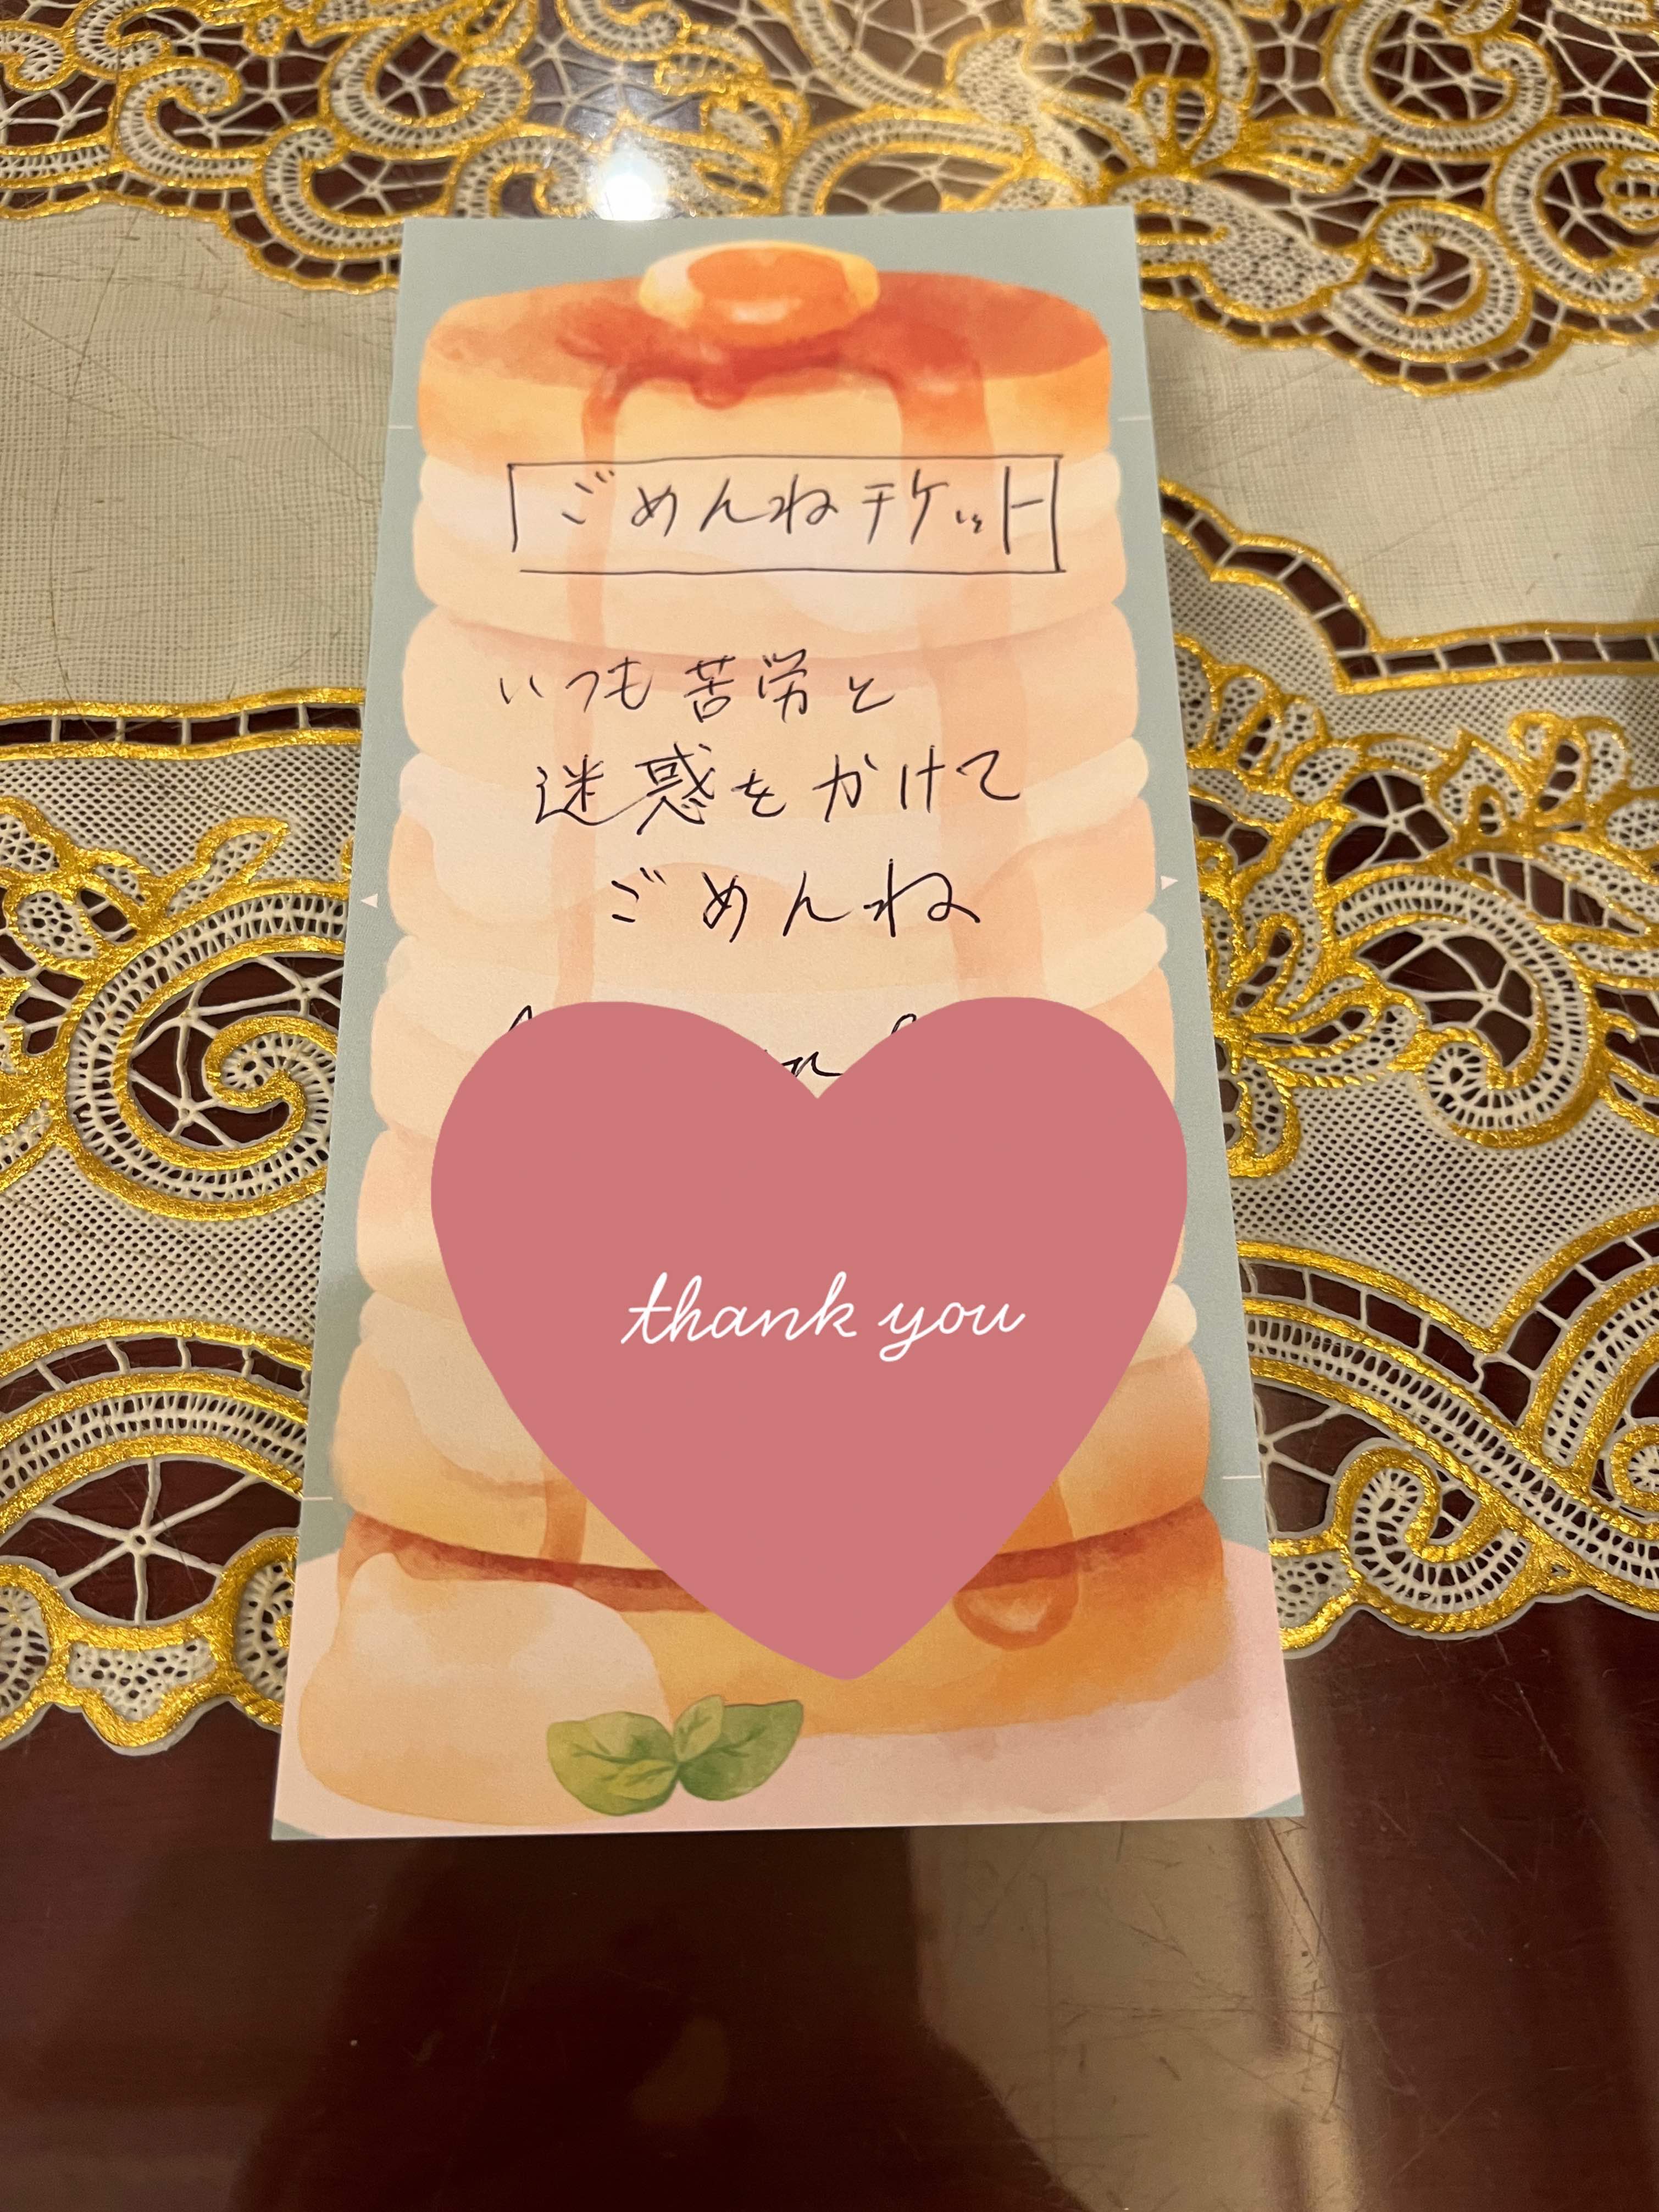 ごめんねチケット
いつも苦労と
迷惑をかけて
ごめんね
thank you